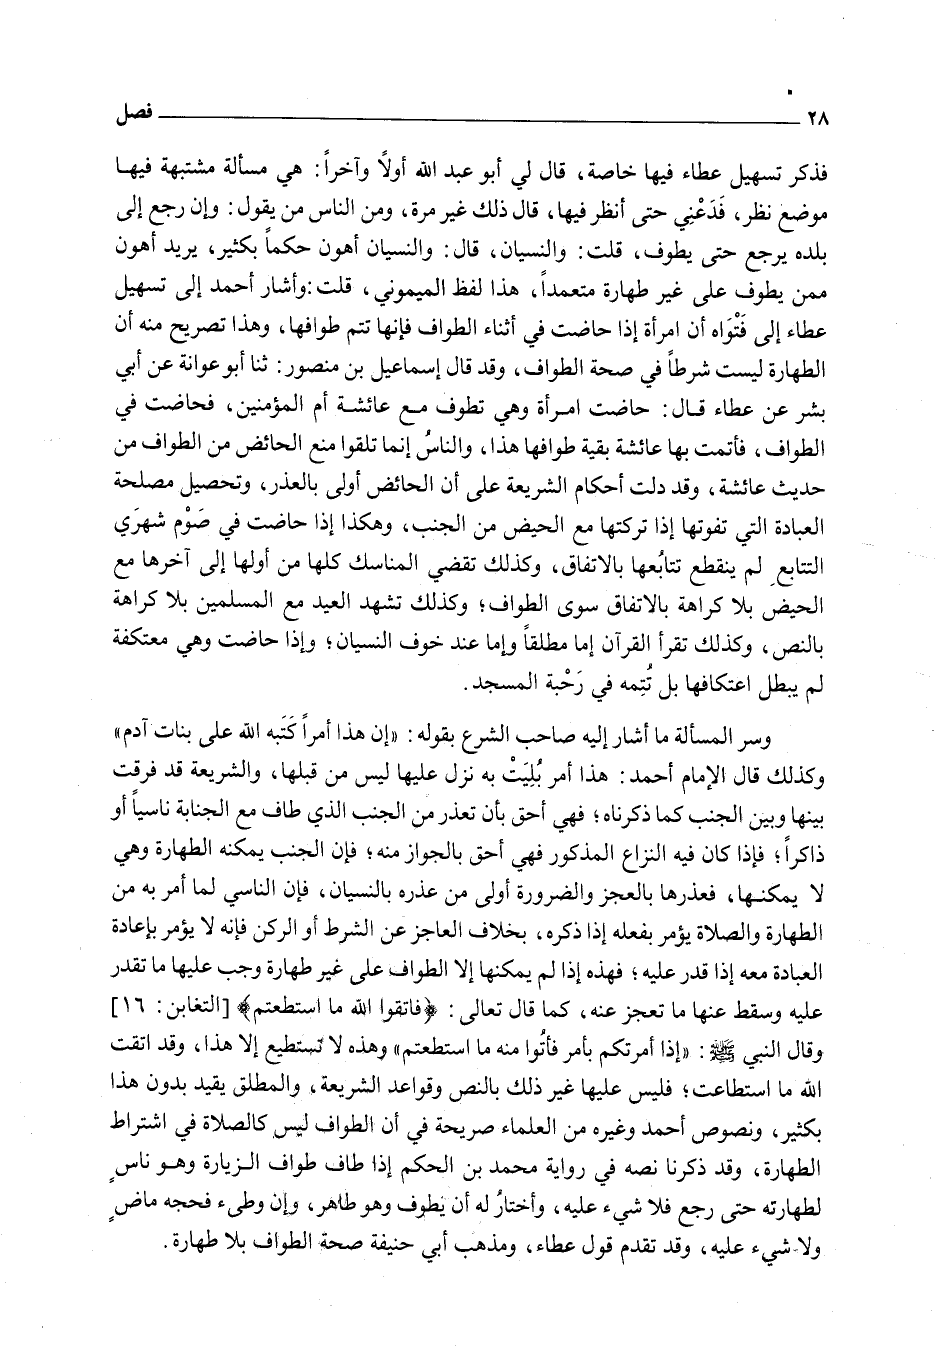 ٢٨ فصل
فذكر تسهيل عطاء فيها خاصة، قال لي أبو عبد الله أولاً وآخراً: هي مسألة مشتبهة فيها
موضع نظر، فَدَعْنِي حتى أنظر فيها، قال ذلك غير مرة، ومن الناس من يقول: وإن رجع إلى
بلده يرجع حتى يطوف، قلت: والنسيان، قال: والنسيان أهون حكماً بكثير، يريد أهون
ممن يطوف على غير طهارة متعمداً، هذا لفظ الميموني، قلت:وأشار أحمد إلى تسهيل
عطاء إلى فَتْوَاه أن امرأة إذا حاضت في أثناء الطواف فإنها تتم طوافها، وهذا تصريح منه أن
الطهارة ليست شرطاً في صحة الطواف، وقد قال إسماعيل بن منصور: ثنا أبو عوانة عن أبي
بشر عن عطاء قال: حاضت امرأة وهي تطوف مع عائشة أم المؤمنين، فحاضت في
الطواف، فأتمت بها عائشة بقية طوافها هذا، والناسُ إنما تلقوا منع الحائض من الطواف من
حديث عائشة، وقد دلت أحكام الشريعة على أن الحائض أولى بالعذر، وتحصيل مصلحة
العبادة التي تفوتها إذا تركتها مع الحيض من الجنب، وهكذا إذا حاضت في صَوْم شهرَي
التتابع لم ينقطع تتابُعها بالاتفاق، وكذلك تقضي المناسك كلها من أولها إلى آخرها مع
الحيض بلا كراهة بالاتفاق سوى الطواف؛ وكذلك تشهد العيد مع المسلمين بلا كراهة
بالنص، وكذلك تقرأ القرآن إما مطلقاً وإما عند خوف النسيان؛ وإذا حاضت وهي معتكفة
لم يبطل اعتكافها بل تُتِمه في رَحْبة المسجد.
وسر المسألة ما أشار إليه صاحب الشرع بقوله: «إن هذا أمراً كَتَبه الله على بنات آدم»
وكذلك قال الإمام أحمد: هذا أمر بُلِيَتْ به نزل عليها ليس من قبلها، والشريعة قد فرقت
بينها وبين الجنب كما ذكرناه؛ فهي أحق بأن تعذر من الجنب الذي طاف مع الجنابة ناسياً أو
ذاكراً؛ فإذا كان فيه النزاع المذكور فهي أحق بالجواز منه؛ فإن الجنب يمكنه الطهارة وهي
لا يمكنها، فعذرها بالعجز والضرورة أولى من عذره بالنسيان، فإن الناسي لما أمر به من
الطهارة والصلاة يؤمر بفعله إذا ذكره، بخلاف العاجز عن الشرط أو الركن فإنه لا يؤمر بإعادة
العبادة معه إذا قدر عليه؛ فهذه إذا لم يمكنها إلا الطواف على غير طهارة وجب عليها ما تقدر
عليه وسقط عنها ما تعجز عنه، كما قال تعالى: ﴿فاتقوا الله ما استطعتم﴾ [التغابن: ١٦]
وقال النبي ﷺ: «إذا أمرتكم بأمر فأتُوا منه ما استطعتم» وهذه لا تستطيع إلا هذا، وقد اتقت
الله ما استطاعت؛ فليس عليها غير ذلك بالنص وقواعد الشريعة، والمطلق يقيد بدون هذا
بكثير، ونصوص أحمد وغيره من العلماء صريحة في أن الطواف ليس كالصلاة في اشتراط
الطهارة، وقد ذكرنا نصه في رواية محمد بن الحكم إذا طاف طواف الزيارة وهو ناسٍ
لطهارته حتى رجع فلا شيء عليه، وأختارُ له أن يَطوف وهو طاهر، وإن وطىء فحجه ماضٍ
ولا شيء عليه، وقد تقدم قول عطاء، ومذهب أبي حنيفة صحة الطواف بلا طهارة.